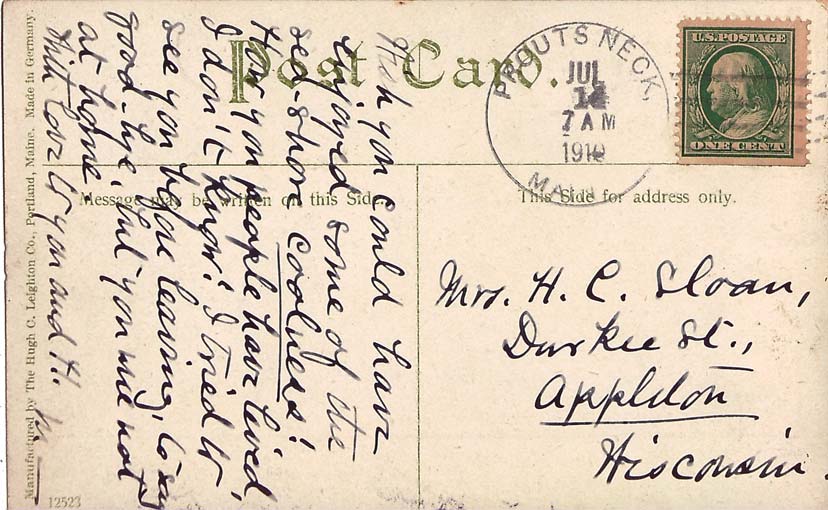 Post Card.
PROUTS NECK,
JUL
12
7 AM
1910
MAINE
U.S. POSTAGE
ONE CENT
Message may be written on this Side
This Side for address only.
Wish you could have
enjoyed some of the
sea-shore coolness!
How you people have lived
I don't know! I tried to
see you before leaving, to say
good-bye, but you were not
at home.
With love to you and H.
Mrs. H. C. Sloan,
Durkee St.,
Appleton
Wisconsin.
Manufactured by The Hugh C. Leighton Co., Portland, Maine. Made in Germany.
12523